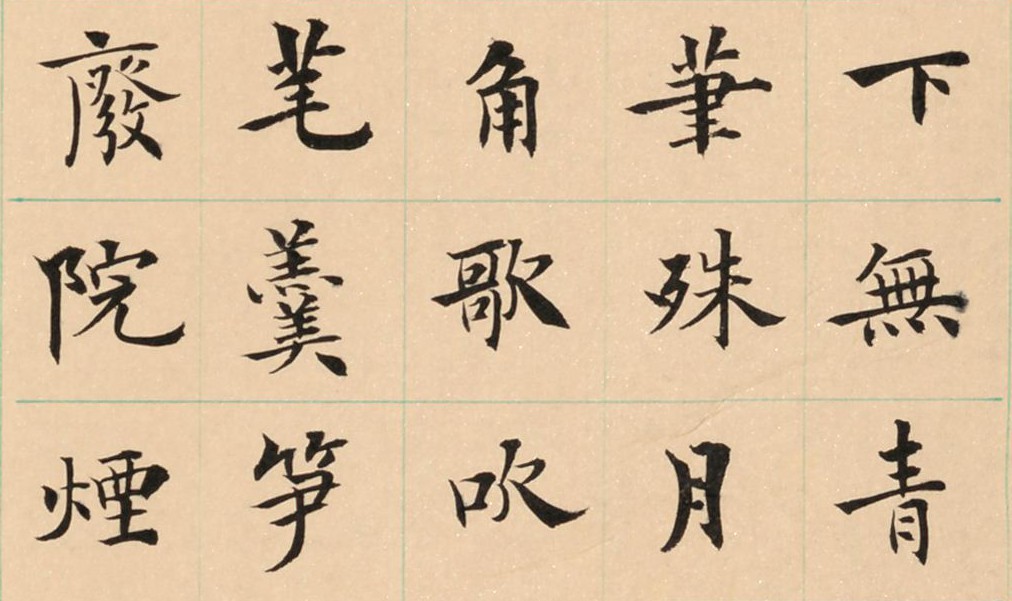 下無青
筆殊月
角歌吹
芼羹笋
廢院煙